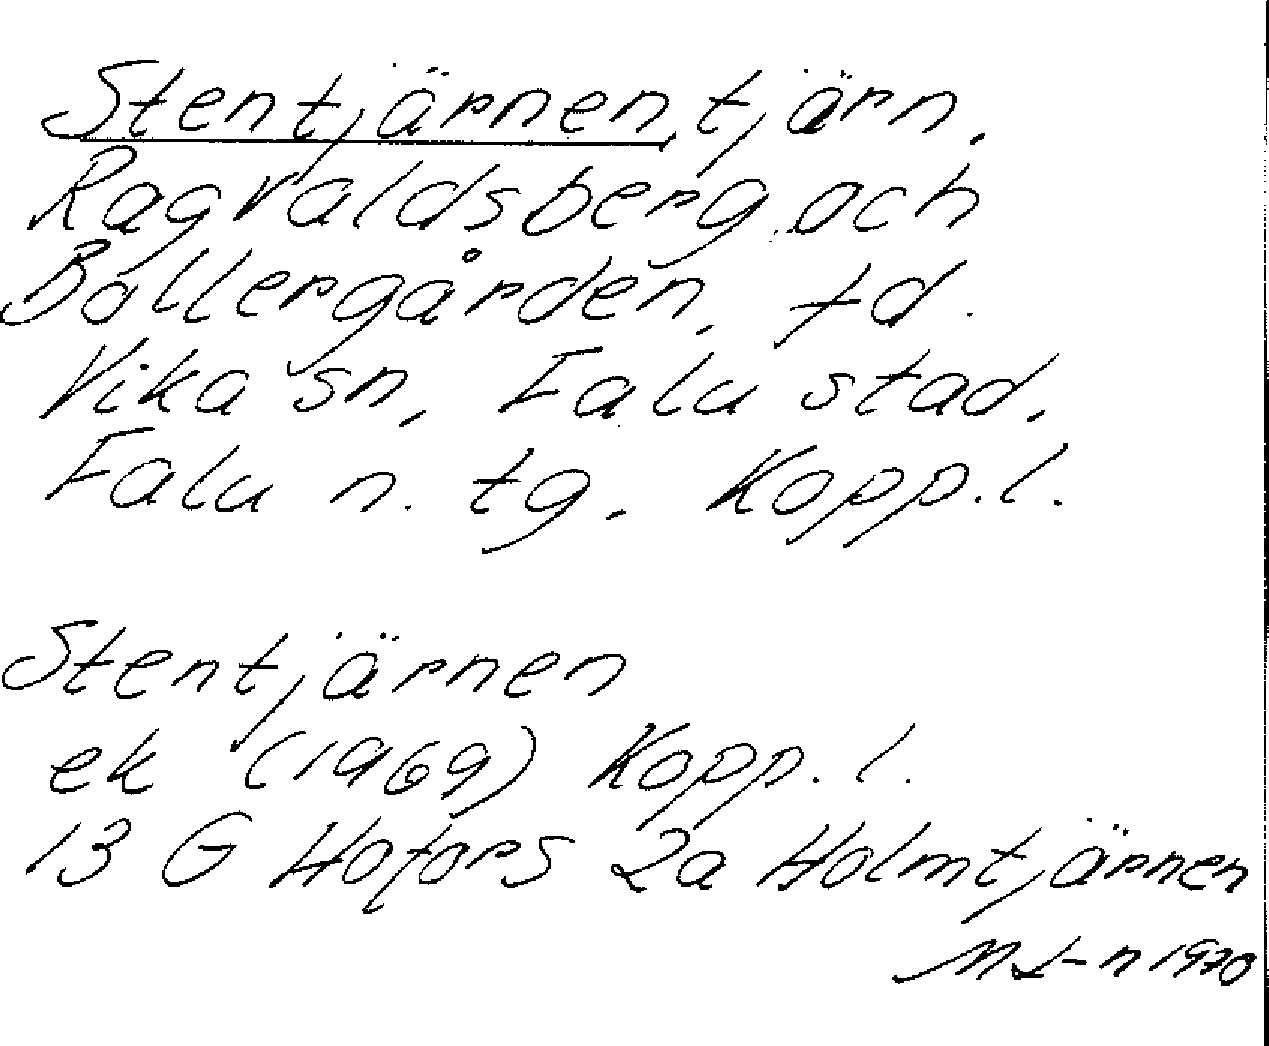 Stentjärnen, tjärn.
Ragvaldsberg och
Bollergården, fd.
Vika sn, Falu stad,
Falu n. tg. Kopp.l.
Stentjärnen
ek (1969) Kopp. l.
13 G Hofors 2a Holmtjärnen
1970